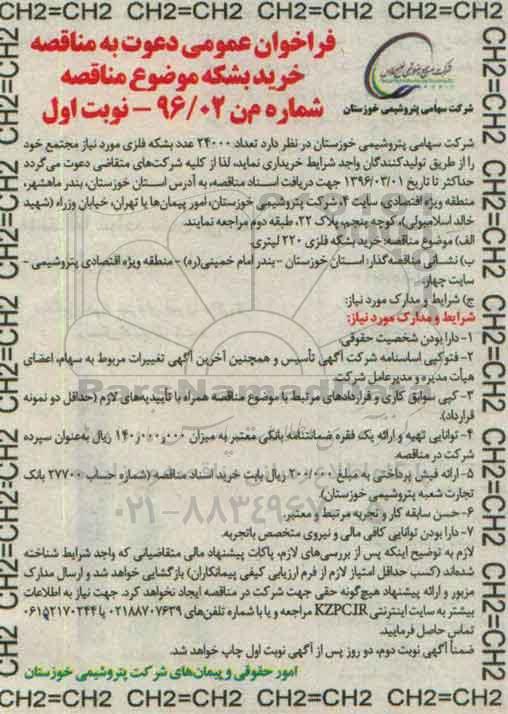 CH2=CH2 CH2=CH2 CH2=CH2 CH2=CH2
فراخوان عمومی دعوت به مناقصه
خرید بشکه موضوع مناقصه
شماره م‌ن ۹۶/۰۲ – نوبت اول
شرکت سهامی پتروشیمی خوزستان
شرکت سهامی پتروشیمی خوزستان در نظر دارد تعداد ۲۴۰۰۰ عدد بشکه فلزی مورد نیاز مجتمع خود
را از طریق تولیدکنندگان واجد شرایط خریداری نماید، لذا از کلیه شرکت‌های متقاضی دعوت می‌گردد
حداکثر تا تاریخ ۱۳۹۶/۰۳/۰۱ جهت دریافت اسناد مناقصه، به آدرس استان خوزستان، بندر ماهشهر،
منطقه ویژه اقتصادی، سایت ۴، شرکت پتروشیمی خوزستان، امور پیمان‌ها یا تهران، خیابان وزراء (شهید
خالد اسلامبولی)، کوچه پنجم، پلاک ۲۲، طبقه دوم مراجعه نمایند.
الف) موضوع مناقصه: خرید بشکه فلزی ۲۲۰ لیتری.
ب) نشانی مناقصه‌گذار: استان خوزستان – بندر امام خمینی(ره) – منطقه ویژه اقتصادی پتروشیمی –
سایت چهار.
ج) شرایط و مدارک مورد نیاز:
شرایط و مدارک مورد نیاز:
۱- دارا بودن شخصیت حقوقی.
۲- فتوکپی اساسنامه شرکت آگهی تأسیس و همچنین آخرین آگهی تغییرات مربوط به سهام، اعضای
هیأت مدیره و مدیرعامل شرکت.
۳- کپی سوابق کاری و قراردادهای مرتبط با موضوع مناقصه همراه با تأییدیه‌های لازم (حداقل دو نمونه
قرارداد).
۴- توانایی تهیه و ارائه یک فقره ضمانتنامه بانکی معتبر به میزان ۱۴۰ر۰۰۰ر۰۰۰ ریال به‌عنوان سپرده
شرکت در مناقصه.
۵- ارائه فیش پرداختی به مبلغ ۲۰۰/۰۰۰ ریال بابت خرید اسناد مناقصه (شماره حساب ۲۷۷۰۰ بانک
تجارت شعبه پتروشیمی خوزستان).
۶- حسن سابقه کار و تجربه مرتبط و معتبر.
۷- دارا بودن توانایی کافی مالی و نیروی متخصص باتجربه.
لازم به توضیح اینکه پس از بررسی‌های لازم، پاکات پیشنهاد مالی متقاضیانی که واجد شرایط شناخته
شده‌اند (کسب حداقل امتیاز لازم از فرم ارزیابی کیفی پیمانکاران) بازگشایی خواهد شد و ارسال مدارک
مزبور و ارائه پیشنهاد هیچ‌گونه حقی جهت شرکت در مناقصه ایجاد نخواهد کرد. جهت نیاز به اطلاعات
بیشتر به سایت اینترنتی KZPC.IR مراجعه و یا با شماره تلفن‌های ۰۲۱۸۸۷۰۷۶۳۹ یا ۰۶۱۵۲۱۷۰۲۴۴
تماس حاصل فرمایید.
ضمناً آگهی نوبت دوم، دو روز پس از آگهی نوبت اول چاپ خواهد شد.
امور حقوقی و پیمان‌های شرکت پتروشیمی خوزستان
CH2=CH2 CH2=CH2 CH2=CH2 CH2=CH2
CH2=CH2 CH2=CH2 CH2=CH2 CH2=CH2
CH2=CH2 CH2=CH2 CH2=CH2 CH2=CH2
ParsNamad
۰۲۱-۸۸۳۴۹۶۷۰